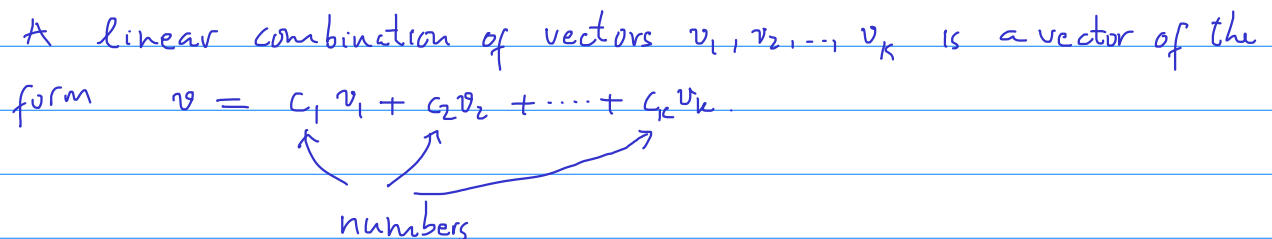 A linear combination of vectors v₁, v₂, ..., vₖ is a vector of the
form v = c₁v₁ + c₂v₂ + ····· + cₖvₖ.
numbers